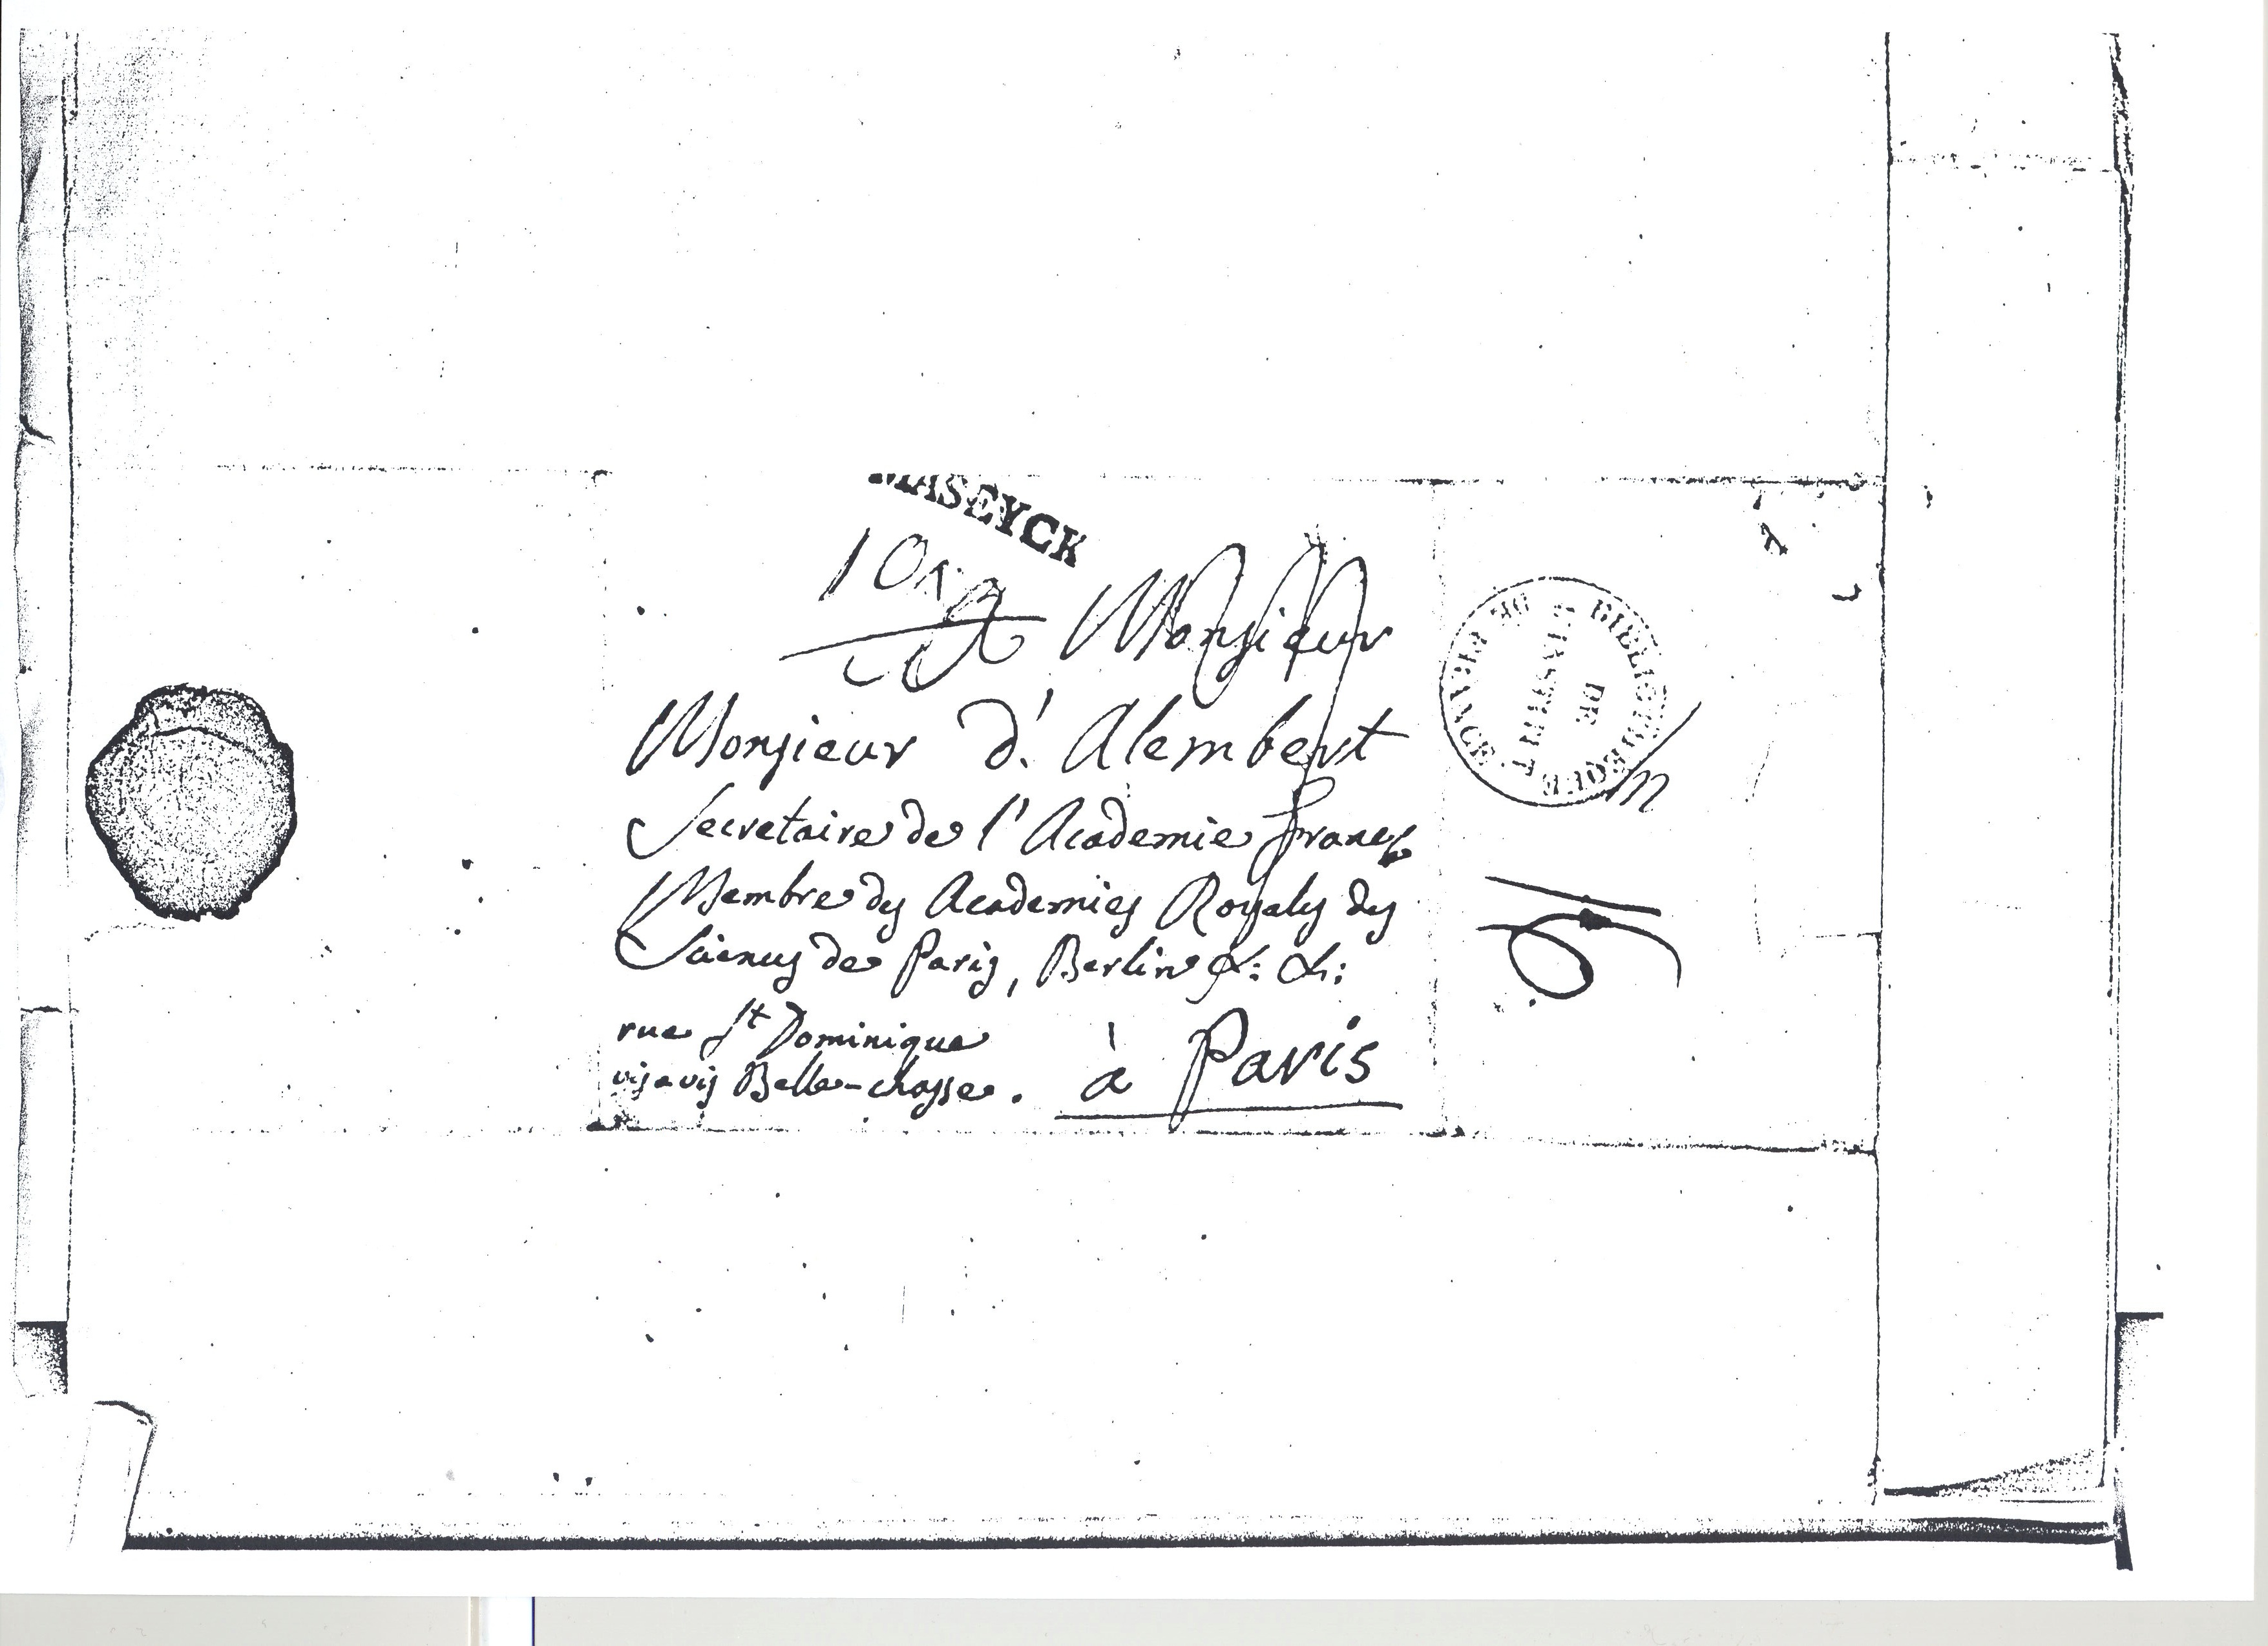 MASEYCK
Monsieur
Monsieur d'. Alembert
Secretaire de l'Academie Franç
Membre des Academies Royales des
Sciences de Paris, Berlin &: &:
rue St Dominique
vis a vis Belle-chasse. à Paris
BIBLIOTHEQUE DE L'INSTITUT DE FRANCE